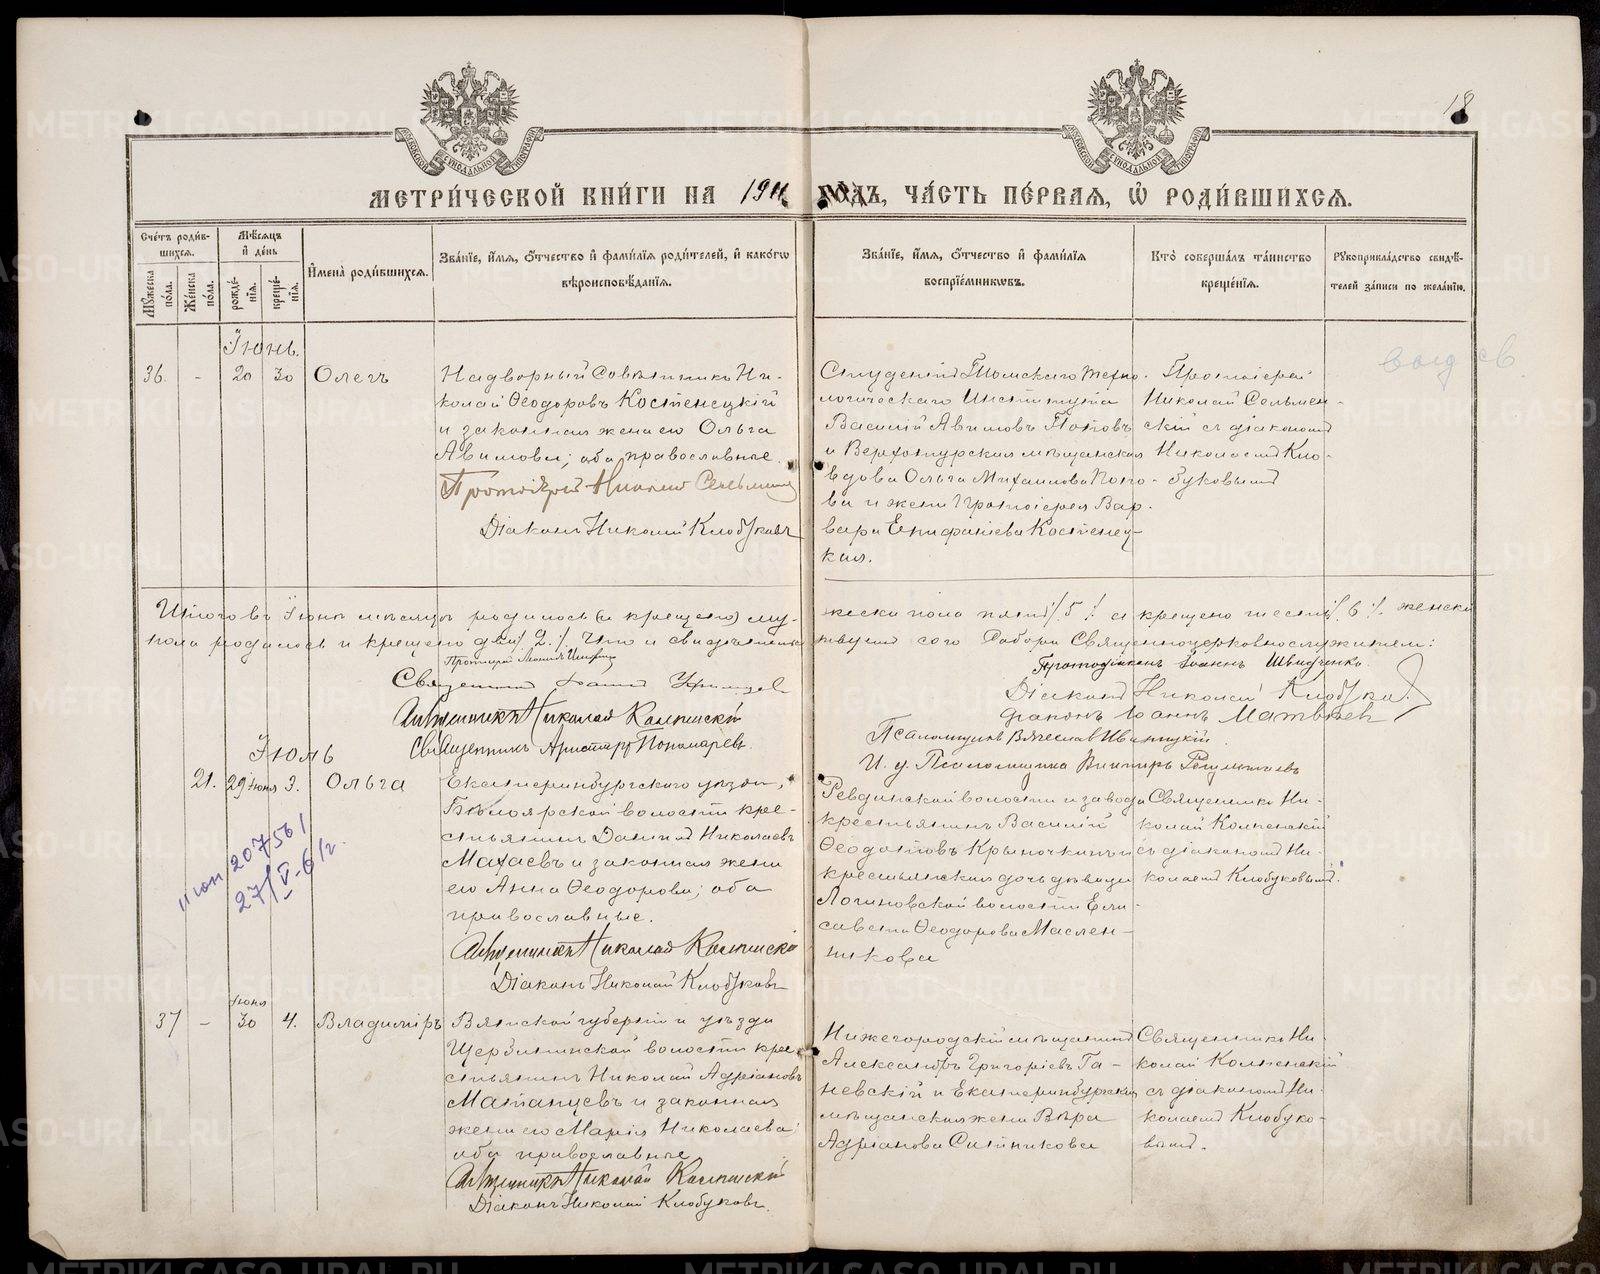 18
МЕТРИ́ЧЕСКОЙ КНИ́ГИ НА 1911 ГОДЪ, ЧА́СТЬ ПЕ́РВАЯ, Ѡ҆ РОДИ́ВШИХСЯ.
Сче́тъ роди́в-
шихся.
Му́жеска по́ла.
Же́нска по́ла.
Мѣ́сяцъ
и҆ де́нь
рожде́-
нїя.
креще́-
нїя.
И҆мена̀ роди́вшихся.
Зва́нїе, и҆́мя, ѻ҆́тчество и҆ фами́лїя роди́телей, и҆ како́гѡ
вѣроисповѣ́данїя.
Зва́нїе, и҆́мя, ѻ҆́тчество и҆ фами́лїя
воспрїе́мникѡвъ.
Кто̀ соверша́лъ та́инство
креще́нїя.
Рꙋкоприкла́дство свидѣ́-
телей за́писи по жела́нїю.
Іюнь.
36. - 20 30 Олегъ
Надворный Совѣтникъ Ни-
колай Ѳеодоровъ Костенецкій
и законная жена его Ольга
Авимова; оба православные.
Протоіерей Николай
Діаконъ Николай Клобуковъ
Студентъ Томскаго Техно-
логическаго Института
Василій Авимовъ Поповъ
и Верхотурская мѣщанская
вдова Ольга Михаилова Попо-
ва и жена Протоіерея Вар-
вара Епифаніева Костенец-
кая.
Протоіерей
Николай Сельмен-
скій съ діакономъ
Николаемъ Кло-
буковымъ
Итого въ Іюнѣ мѣсяцѣ родилось (и крещено) му-
жеска пола пять /5/ а крещено шесть /6/. женска
пола родилось и крещено два /2/. Что и свидѣтельст-
вуемъ сего Собора Священноцерковнослужители:
Протоіерей
Священникъ
Николай
Священникъ Аристархъ Пономаревъ.
Протодіаконъ Іоаннъ Швидченко
Діаконъ Николай Клобуковъ
діаконъ Іоаннъ Матвѣевъ
Псаломщикъ Вячеславъ Иваницкій.
И. д. Псаломщика
Іюль
21. 29 Іюня 3. Ольга
Екатеринбургскаго уѣзда,
Бѣлоярской волости кре-
стьянинъ Даніилъ Николаевъ
Махаевъ и законная жена
его Анна Ѳеодорова; оба
православные.
Николай
Діаконъ Николай Клобуковъ
Ревдинской волости и завода
крестьянинъ Василій
Ѳеодотовъ Крыночкинъ и
крестьянская дочь дѣвица
Логиновской волости Ели-
савета Ѳеодорова Маслен-
никова
Священникъ Ни-
колай
съ діакономъ Ни-
колаемъ Клобуковымъ.
207561
27/V-61г.
37 - Іюня 30 4. Владиміръ
Вятской губерніи и уѣзда
волости кре-
стьянинъ Николай Адріановъ
Матанцевъ и законная
жена его Марія Николаева;
оба православные
Николай
Діаконъ Николай Клобуковъ.
Нижегородскій мѣщанинъ
Александръ Григоріевъ Га-
невскій и Екатеринбургская
мѣщанская жена Вѣра
Адріанова Ситникова
Священникъ Ни-
колай
съ діакономъ Ни-
колаемъ Клобуко-
вымъ.
METRIKI.GASO-URAL.RU